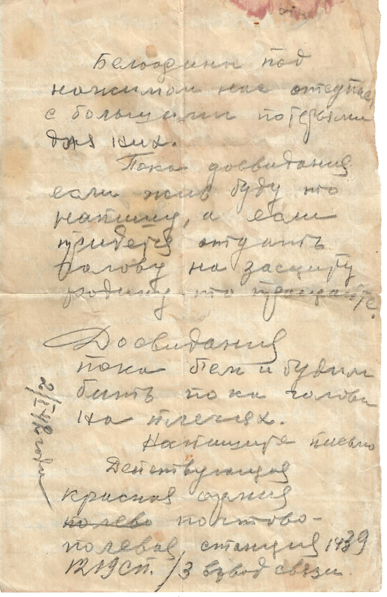 под
нажимом нас отступает
с большими потерями
для них.
Пока досвидания
если жив буду то
напишу, а если
придется отдать
голову на защиту
родины, то прощайте.
Досвидания
пока бем и будим
бить пока голова
на плечах.
Напишите письмо
Действующая
красная армия
полево почтово-
полевая, станция 1439
1219 СП. /3 взвод связи.